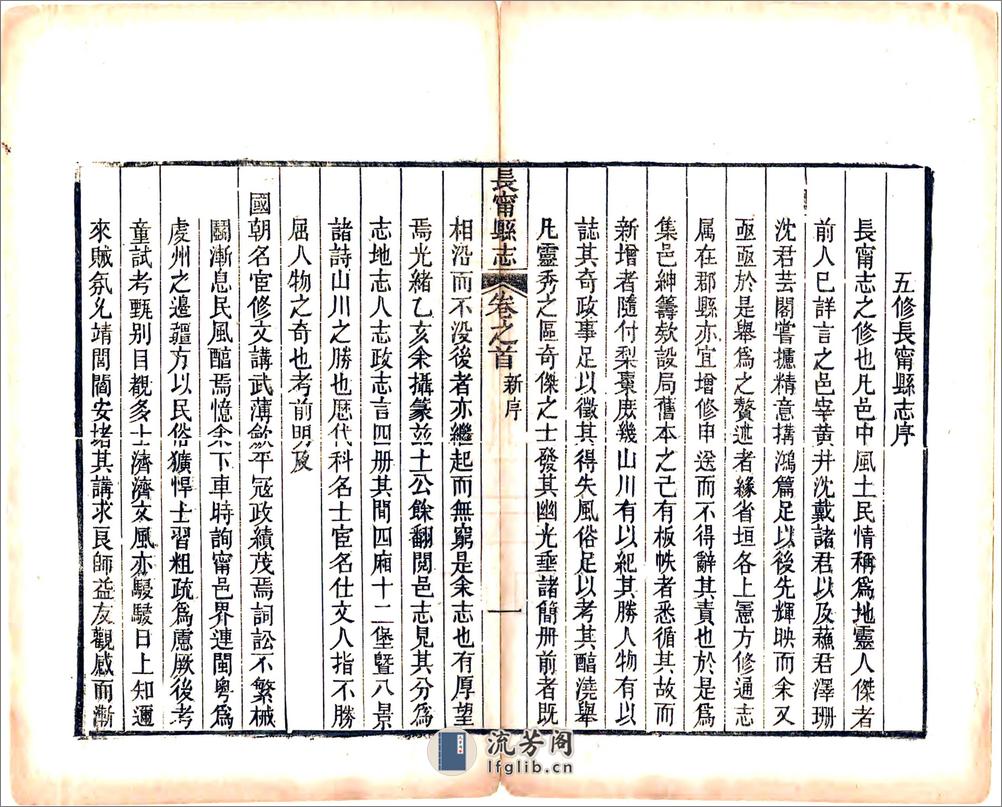 五修長甯縣志序
長甯志之修也凡邑中風土民情稱爲地靈人傑者
前人已詳言之邑宰黃井沈戴諸君以及蘓君澤珊
沈君芸閣嘗攄精意搆鴻篇足以後先輝映而余又
亟亟於是舉爲之贅述者緣省垣各上憲方修通志
属在郡縣亦宜增修申送而不得辭其責也於是爲
集邑紳籌欵設局舊本之已有板帙者悉循其故而
新增者隨付梨棗庶幾山川有以紀其勝人物有以
誌其奇政事足以徵其得失風俗足以考其醕澆舉
凡靈秀之區奇傑之士發其幽光垂諸簡册前者既
長甯縣志
卷之首
新序
一
相沿而不没後者亦繼起而無窮是余志也有厚望
焉光緒乙亥余攝篆兹土公餘翻閱邑志見其分爲
志地志人志政志言四册其間四廂十二堡暨八景
諸詩山川之勝也歷代科名士宦名仕文人指不勝
屈人物之奇也考前明及
國朝名宦修文講武薄斂平冦政績茂焉詞訟不繁械
鬭漸息民風醕焉憶余下車時詢甯邑界連閩粤爲
虔州之邊疆方以民俗獷悍士習粗疏爲慮厥後考
童試考甄别目覩多士濟濟文風亦駸駸日上知邇
來賊氛允靖閭閻安堵其講求良師益友觀感而漸
流芳阁
lfglib.cn